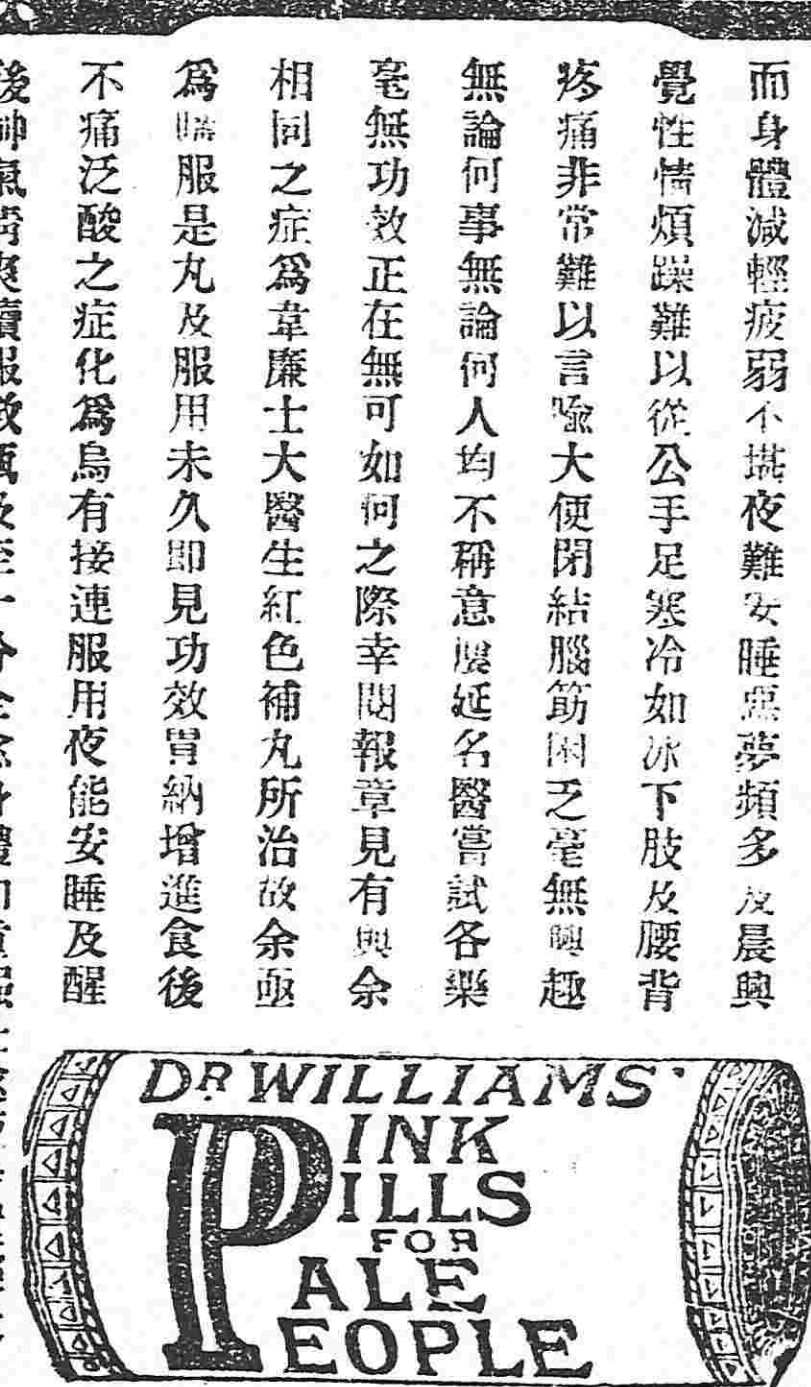 而身體減輕疲弱不堪夜難安睡惡夢頻多及晨興
覺性情煩躁難以從公手足寒冷如冰下肢及腰背
疼痛非常難以言喻大便閉結腦筋困乏毫無興趣
無論何事無論何人均不稱意屢延名醫嘗試各藥
毫無功效正在無可如何之際幸閱報章見有與余
相同之症為韋廉士大醫生紅色補丸所治故余亟
為購服是丸及服用未久即見功效胃納增進食後
不痛泛酸之症化為烏有接連服用夜能安睡及醒
DR WILLIAMS'
PINK
PILLS
FOR
PALE
PEOPLE